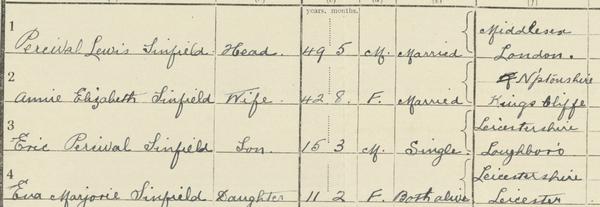 years. months.
1 Middlesex
Percival Lewis Sinfield Head. 49 5 M. Married London.
2 N'ptonshire
Annie Elizabeth Sinfield Wife. 42 8. F. Married Kings Cliffe
3 Leicestershire
Eric Percival Sinfield Son. 15 3 M. Single Loughboro
4 Leicestershire
Eva Marjorie Sinfield Daughter 11 2 F. Both alive Leicester